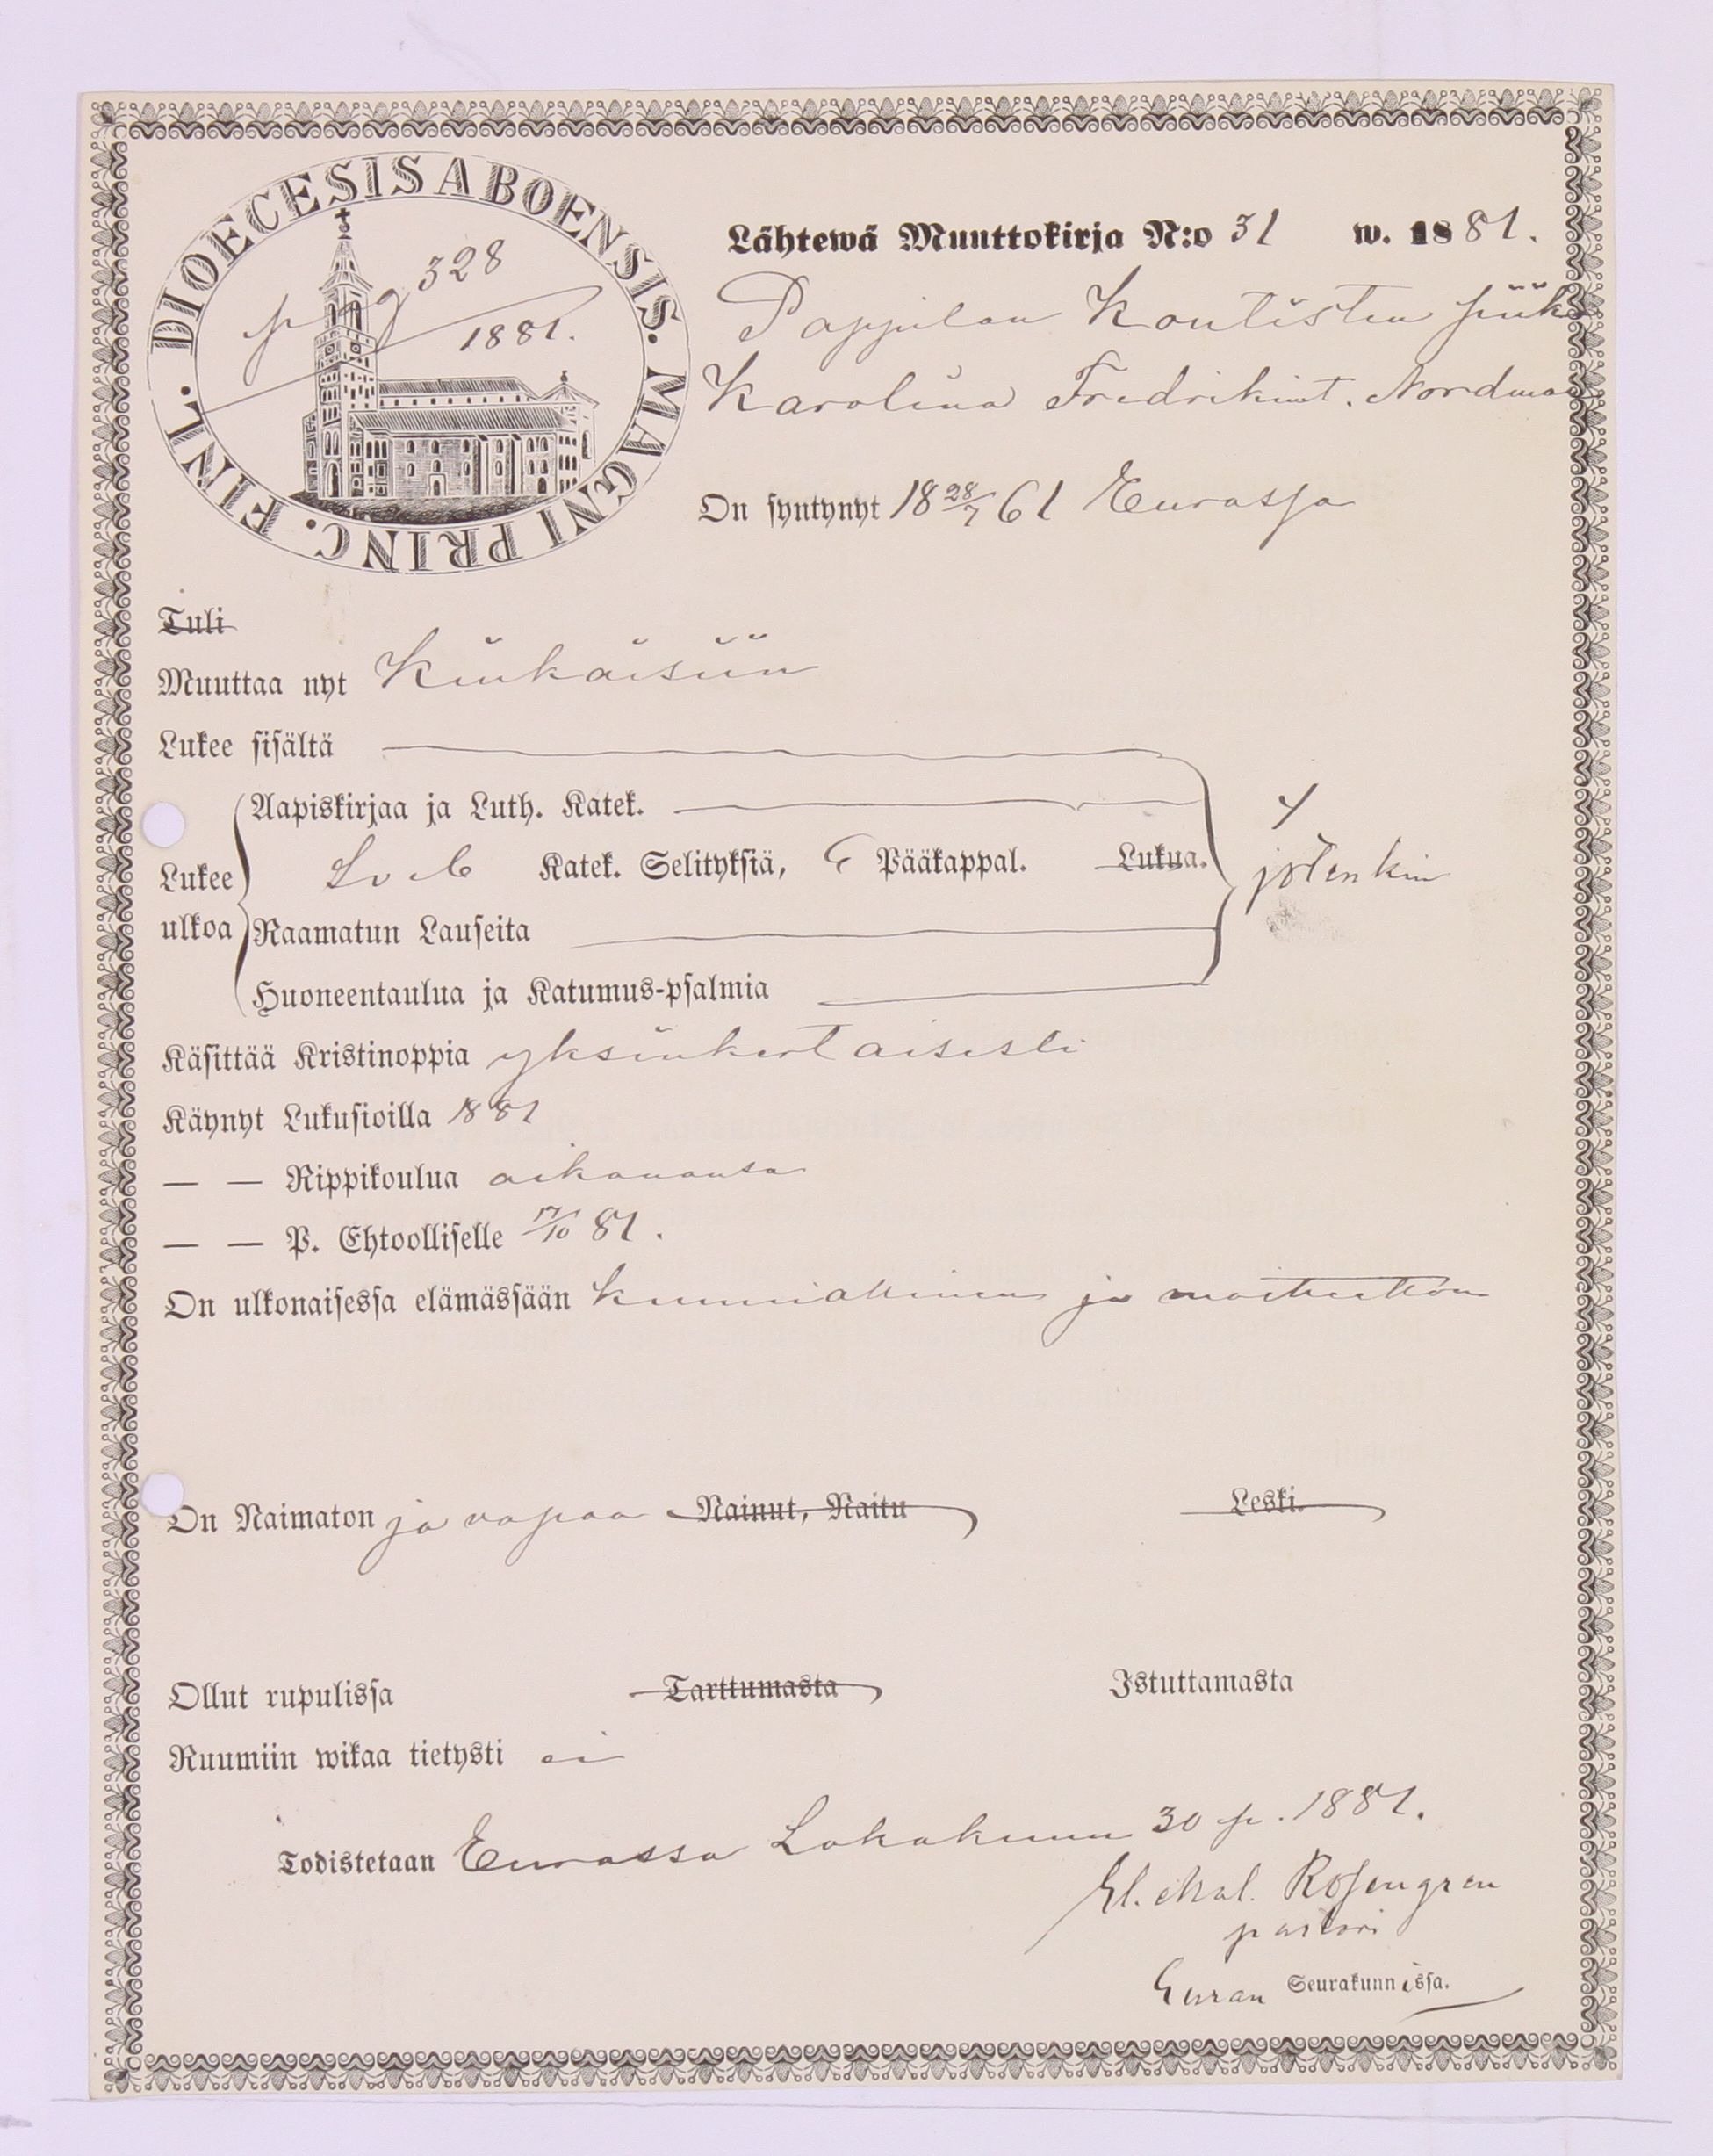 DIOECESIS ABOENSIS. MAGNI PRINC. FINL.
pag 328
1881.
Lähtewä Muuttokirja N:o 31 w. 1881.
Pappilan Kontisten piika
Karolina Fredrikint. Nordman
On syntynyt 18 28/7 61 Eurassa
Tuli
Muuttaa nyt Kiukaisiin
Lukee sisältä
Aapiskirjaa ja Luth. Katek.
Lukee Katek. Selityksiä, Pääkappal. Lukua. jotenkin
ulkoa Raamatun Lauseita
Huoneentaulua ja Katumus-psalmia
Käsittää Kristinoppia yksinkertaisesti
Käynyt Lukusioilla 1881
— — Rippikoulua aikanansa
— — P. Ehtoolliselle 17/10 81.
On ulkonaisessa elämässään kunniallinen ja moitteeton
On Naimaton ja vapaa Nainut, Naitu Leski.
Ollut rupulissa Tarttumasta Istuttamasta
Ruumiin wikaa tietysti ei
Todistetaan Eurassa Lokakuun 30 p. 1881.
Rosengren
pastori
Euran Seurakunnissa.